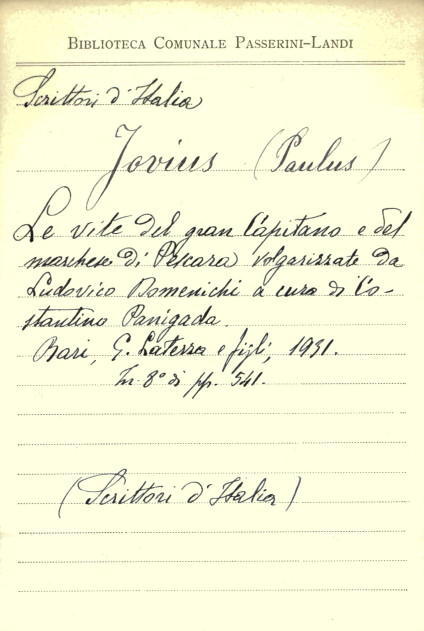 BIBLIOTECA COMUNALE PASSERINI-LANDI
Scrittori d'Italia
Jovius (Paulus)
Le vite del gran Capitano e del
marchese di Pescara volgarizzate da
Ludovico Domenichi a cura di Co-
stantino Panigada.
Bari, G. Laterza e figli, 1931.
In 8° di pp. 541.
(Scrittori d'Italia)